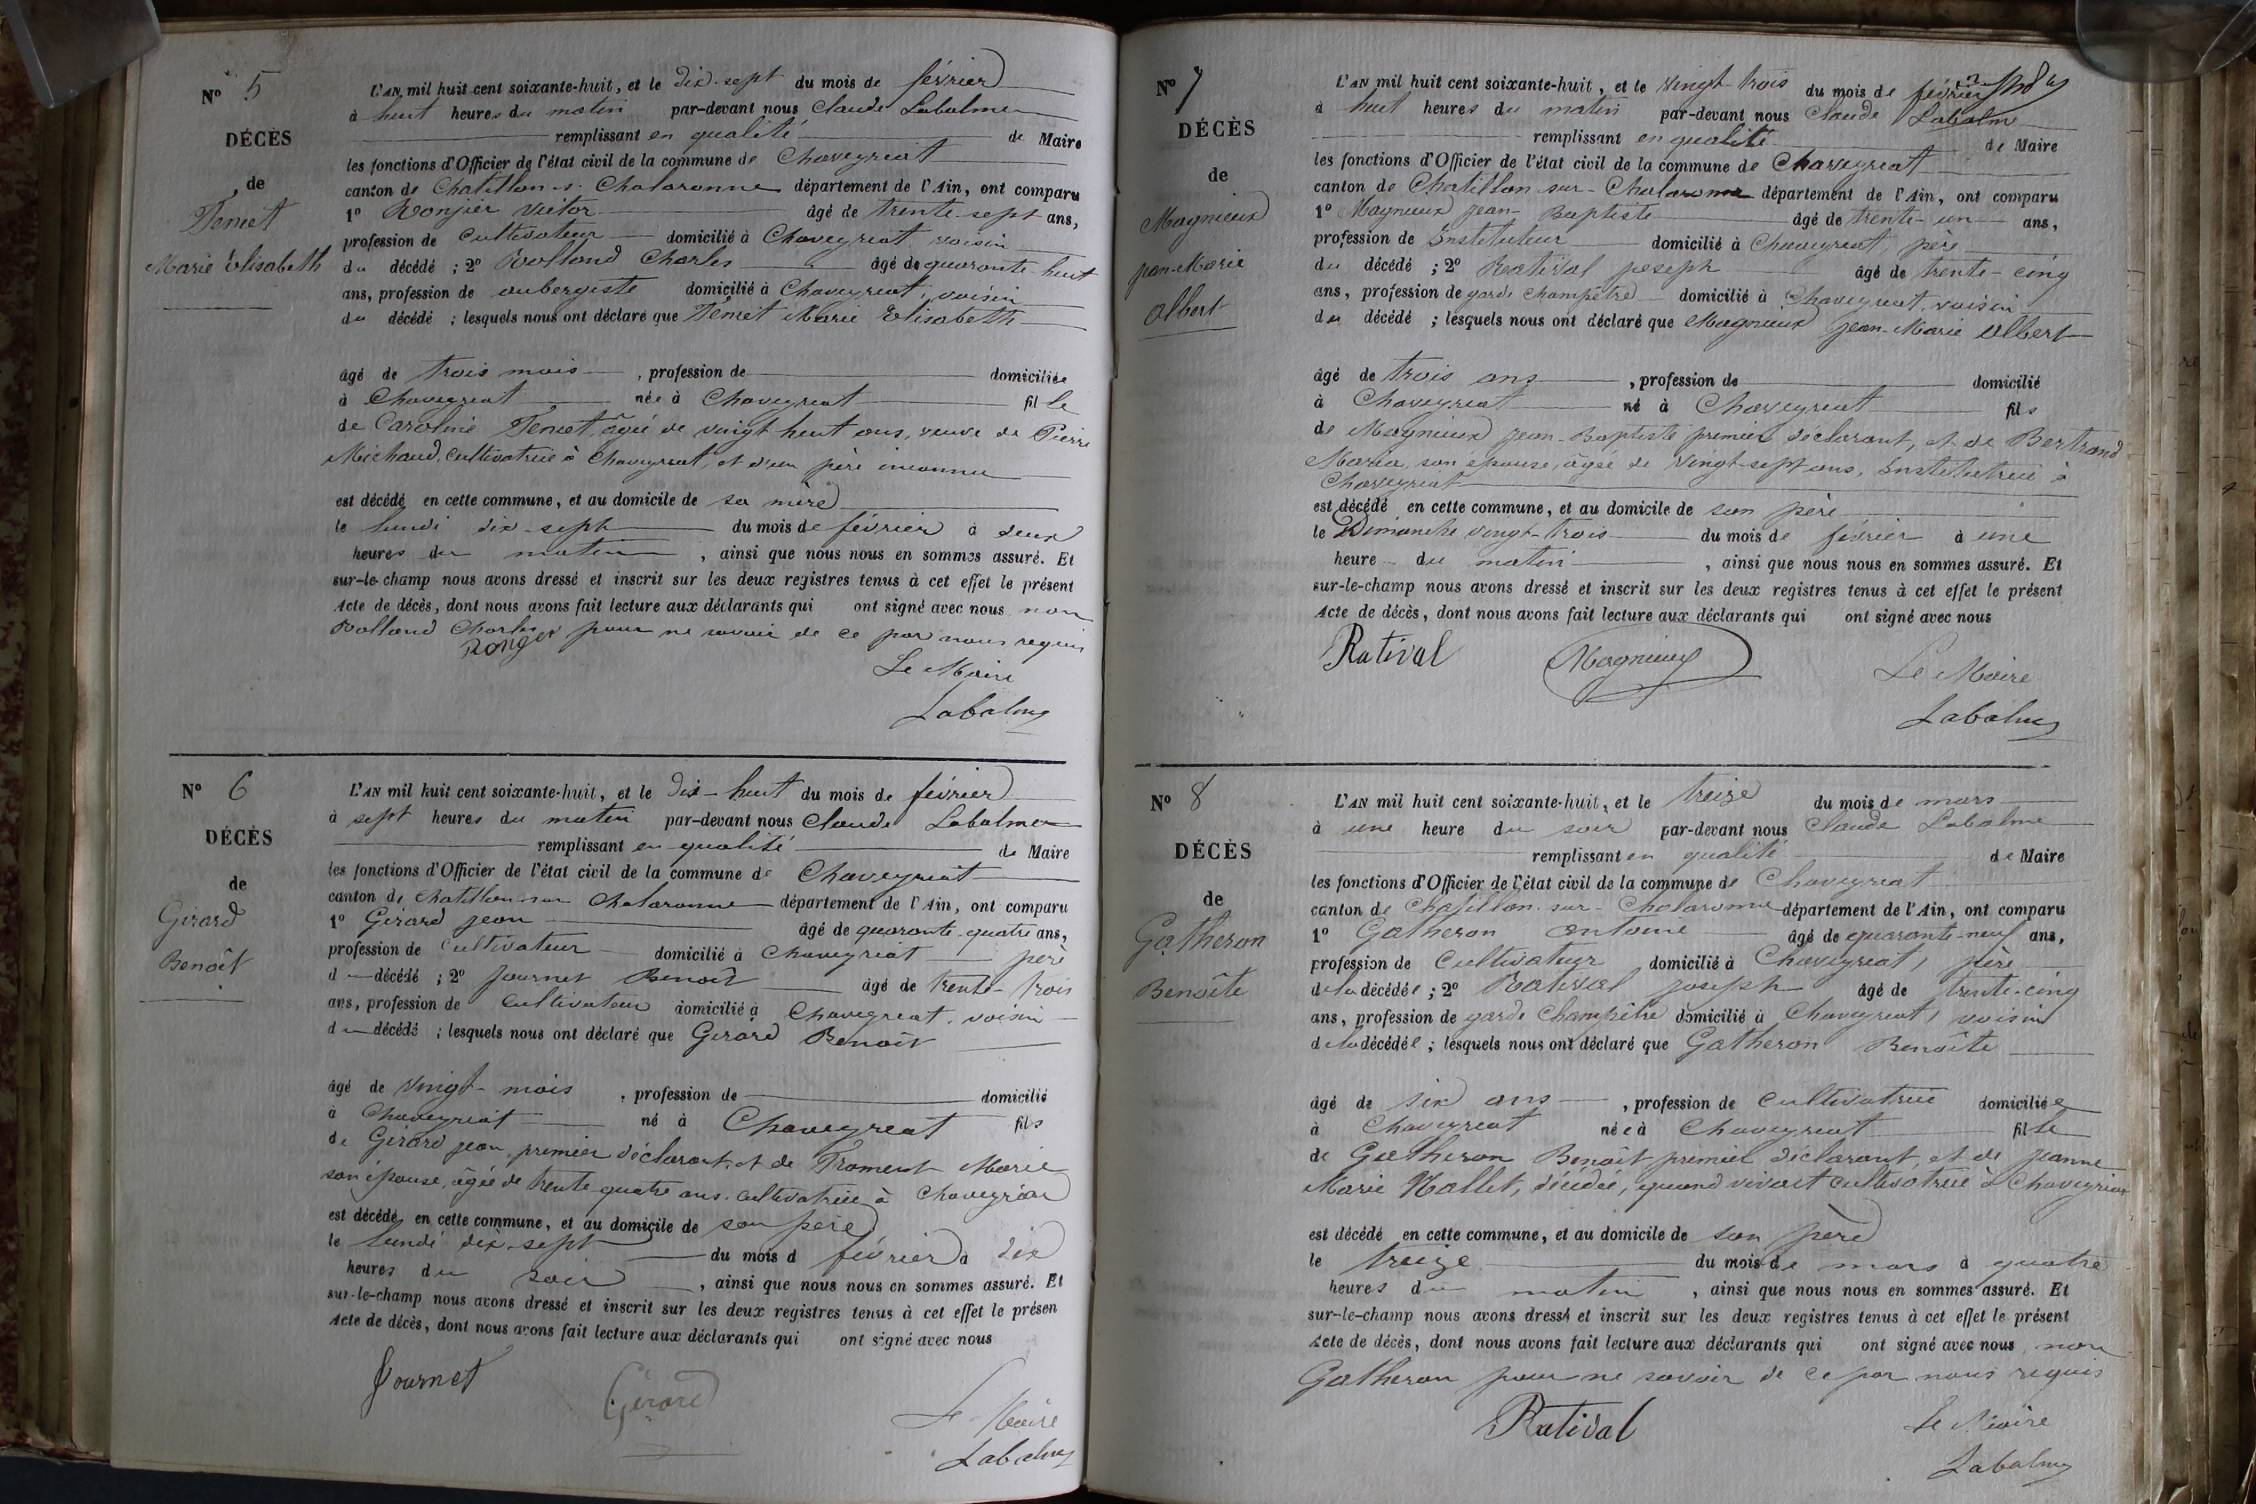 Nº 5
DÉCÈS
de
Tenet
Marie Elisabeth
L'AN mil huit cent soixante-huit, et le dix-sept du mois de février
à huit heures du matin par-devant nous Claude Labalme
remplissant en qualité de Maire
les fonctions d'Officier de l'état civil de la commune de Chaveyriat
canton de Chatillon-s-Chalaronne département de l'Ain, ont comparu
1º Ronjier Victor âgé de trente-sept ans,
profession de Cultivateur domicilié à Chaveyriat, voisin
du décédé ; 2º Rolland Charles âgé de quarante huit
ans, profession de aubergiste domicilié à Chaveyriat, voisin
du décédé ; lesquels nous ont déclaré que Tenet Marie Elisabeth
âgé de trois mois, profession de domiciliée
à Chaveyriat née à Chaveyriat fille
de Caroline Tenet, âgée de vingt huit ans, veuve de Pierre
Michaud, cultivatrice à Chaveyriat, et d'un père inconnu
est décédé en cette commune, et au domicile de sa mère
le lundi dix-sept du mois de février à deux
heures du matin, ainsi que nous nous en sommes assuré. Et
sur-le-champ nous avons dressé et inscrit sur les deux registres tenus à cet effet le présent
Acte de décès, dont nous avons fait lecture aux déclarants qui ont signé avec nous non
Rolland Charles pour ne savoir de ce par nous requis
Le Maire
Labalme
Nº 6
DÉCÈS
de
Girard
Benoît
L'AN mil huit cent soixante-huit, et le dix-huit du mois de février
à sept heures du matin par-devant nous Claude Labalme
remplissant en qualité de Maire
les fonctions d'Officier de l'état civil de la commune de Chaveyriat
canton de Chatillon-sur Chalaronne département de l'Ain, ont comparu
1º Girard Jean âgé de quarante-quatre ans,
profession de Cultivateur domicilié à Chaveyriat père
d décédé ; 2º Journet Benoît âgé de trente-trois
ans, profession de cultivateur domicilié à Chaveyriat, voisin
du décédé ; lesquels nous ont déclaré que Girard Benoît
âgé de vingt-mois, profession de domicilié
à Chaveyriat né à Chaveyriat fils
de Girard Jean, premier déclarant, et de Froment Marie
son épouse, âgée de trente-quatre ans, cultivatrice à Chaveyriat
est décédé en cette commune, et au domicile de son père
le lundi dix-sept du mois d février à dix
heures du soir, ainsi que nous nous en sommes assuré. Et
sur-le-champ nous avons dressé et inscrit sur les deux registres tenus à cet effet le présen
Acte de décès, dont nous avons fait lecture aux déclarants qui ont signé avec nous
Journet
Girard
Le Maire
Labalme
Nº 7
DÉCÈS
de
Magnieux
Jean-Marie
Albert
L'AN mil huit cent soixante-huit, et le vingt-trois du mois de février
à huit heures du matin par-devant nous Claude Labalme
remplissant en qualité de Maire
les fonctions d'Officier de l'état civil de la commune de Chaveyreat
canton de Chatillon-sur-Chalaronne département de l'Ain, ont comparu
1º Magnieux Jean-Baptiste âgé de trente-un ans,
profession de Instituteur domicilié à Chaveyriat, père
du décédé ; 2º Ratival Joseph âgé de trente-cinq
ans, profession de garde champêtre domicilié à Chaveyriat, voisin
du décédé ; lesquels nous ont déclaré que Magnieux Jean-Marie Albert
âgé de trois ans, profession de domicilié
à Chaveyriat né à Chaveyriat fils
de Magnieux Jean-Baptiste premier déclarant, et de Bertrand
Maria, son épouse, âgée de vingt-sept ans, Institutrice à
Chaveyriat
est décédé en cette commune, et au domicile de son père
le Dimanche vingt-trois du mois de février à une
heure du matin, ainsi que nous nous en sommes assuré. Et
sur-le-champ nous avons dressé et inscrit sur les deux registres tenus à cet effet le présent
Acte de décès, dont nous avons fait lecture aux déclarants qui ont signé avec nous
Ratival
Magnieux
Le Maire
Labalme
Nº 8
DÉCÈS
de
Gatheron
Benoîte
L'AN mil huit cent soixante-huit, et le treize du mois de mars
à une heure du soir par-devant nous Claude Labalme
remplissant en qualité de Maire
les fonctions d'Officier de l'état civil de la commune de Chaveyriat
canton de Chatillon-sur-Chalaronne département de l'Ain, ont comparu
1º Gatheron Antoine âgé de quarante-neuf ans,
profession de Cultivateur domicilié à Chaveyriat, père
de la décédée ; 2º Ratival Joseph âgé de trente-cinq
ans, profession de garde Champêtre domicilié à Chaveyriat, voisin
de la décédée ; lesquels nous ont déclaré que Gatheron Benoîte
âgé de six ans, profession de cultivatrice domiciliée
à Chaveyriat née à Chaveyriat fille
de Gatheron Benoît premier déclarant, et de Jeanne
Marie Hallet, décédée, quand vivait cultivatrice à Chaveyriat
est décédé en cette commune, et au domicile de son père
le treize du mois de mars à quatre
heures du matin, ainsi que nous nous en sommes assuré. Et
sur-le-champ nous avons dressé et inscrit sur les deux registres tenus à cet effet le présent
Acte de décès, dont nous avons fait lecture aux déclarants qui ont signé avec nous, non
Gatheron pour ne savoir de ce par nous requis
Ratival
Le Maire
Labalme